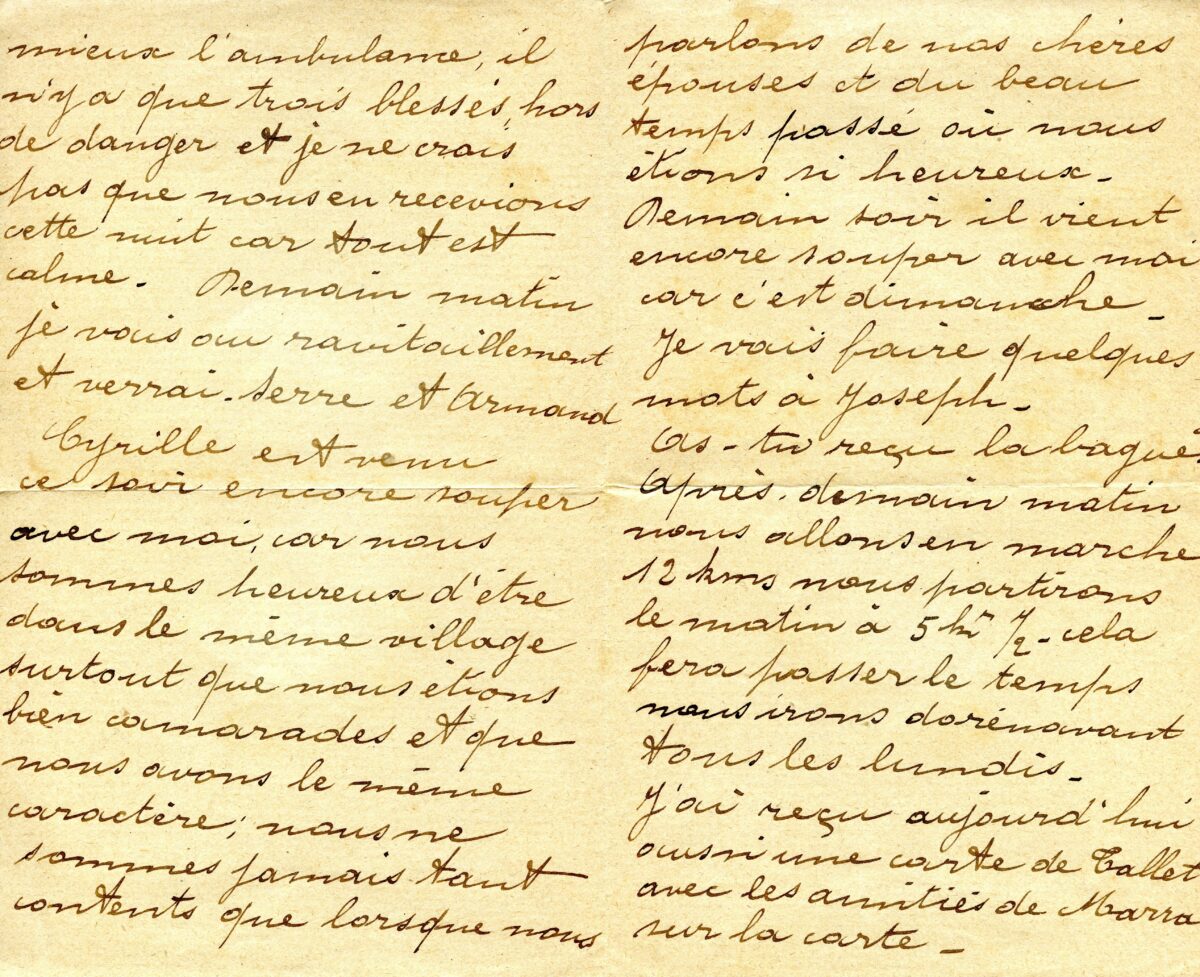 mieux l'ambulance, il
n'y a que trois blessés, hors
de danger et je ne crois
pas que nous en recevions
cette nuit car tout est
calme. Demain matin
je vais au ravitaillement
et verrai Serre et Armand
Cyrille est venu
ce soir encore souper
avec moi, car nous
sommes heureux d'être
dans le même village
surtout que nous étions
bien camarades et que
nous avons le même
caractère; nous ne
sommes jamais tant
contents que lorsque nous
parlons de nos chères
épouses et du beau
temps passé où nous
étions si heureux_
Demain soir il vient
encore souper avec moi
car c'est dimanche_
Je vais faire quelques
mots à Joseph_
As-tu reçu la bague?
Après-demain matin
nous allons en marche
12 kms nous partirons
le matin à 5 hrs 1/2_cela
fera passer le temps
nous irons dorénavant
tous les lundis_
J'ai reçu aujourd'hui
aussi une carte de Tallet
avec les amitiés de Marra
sur la carte_